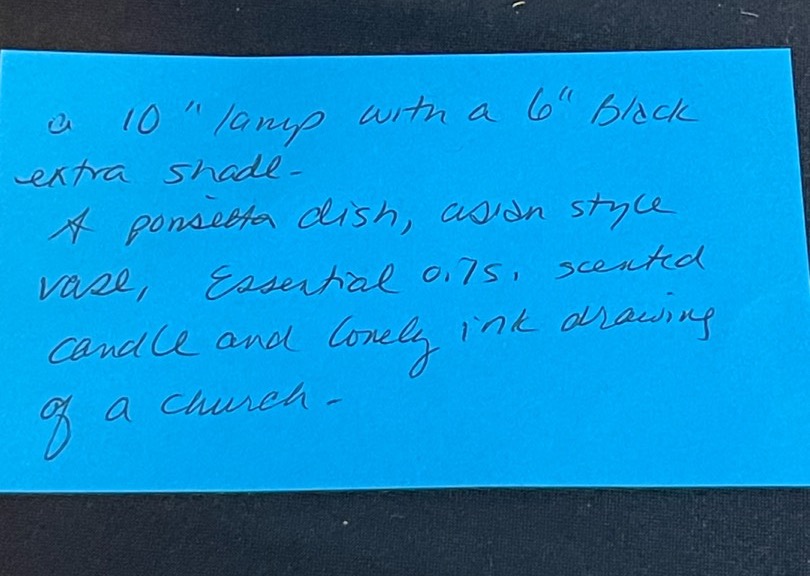 a 10" lamp with a 6" black
extra shade-
A ponsetta dish, asian style
vase, Essential oils, scented
candle and lovely ink drawing
of a church-